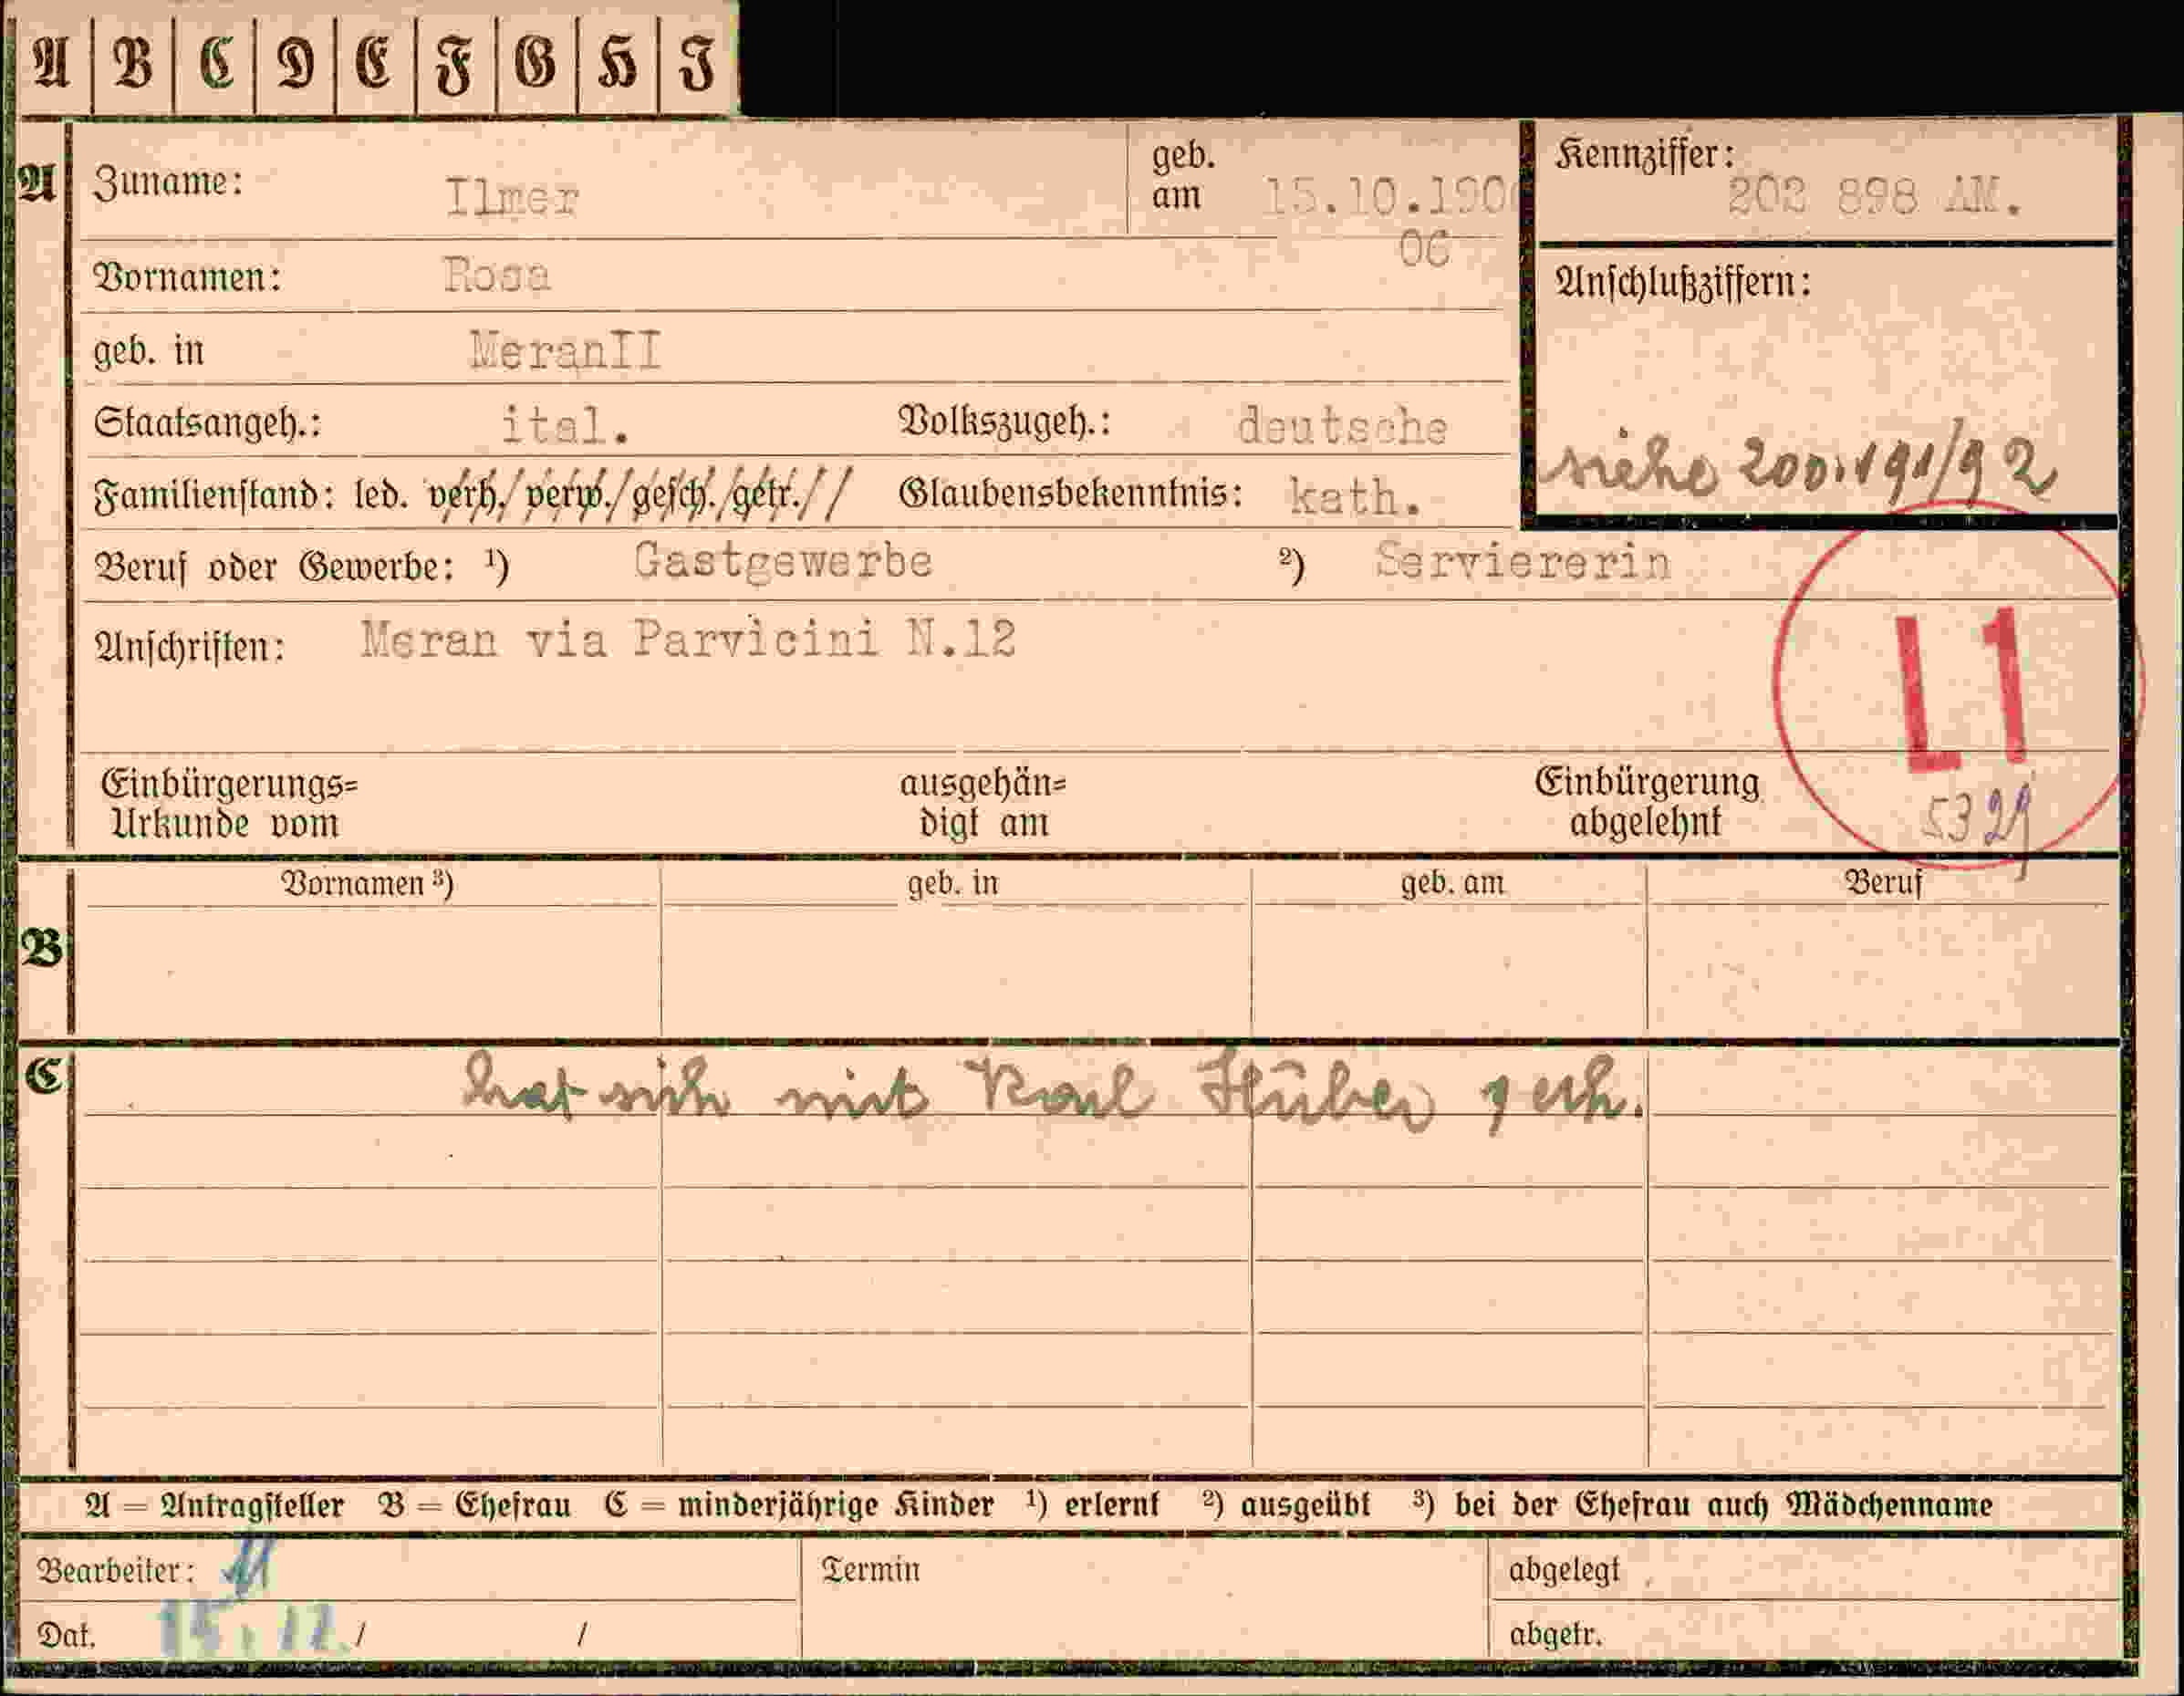 A B C D E F G H I
A Zuname: Ilmer geb. am 15.10.190
06
Kennziffer: 202 898 AM.
Vornamen: Rosa
Anschlußziffern:
geb. in MeranII
Staatsangeh.: ital. Volkszugeh.: deutsche
siehe 200.191/92
Familienstand: led. verh./verw./gesch./getr.// Glaubensbekenntnis: kath.
Beruf oder Gewerbe: ¹) Gastgewerbe ²) Serviererin
Anschriften: Meran via Parvicini N.12
L1
Einbürgerungs= ausgehän= Einbürgerung
Urkunde vom digt am abgelehnt
Vornamen ³) geb. in geb. am Beruf
B
C hat sich mit Karl Hūber verh.
A = Antragsteller B = Ehefrau C = minderjährige Kinder ¹) erlernt ²) ausgeübt ³) bei der Ehefrau auch Mädchenname
Bearbeiter: Termin abgelegt
Dat. 15.12./ / abgetr.